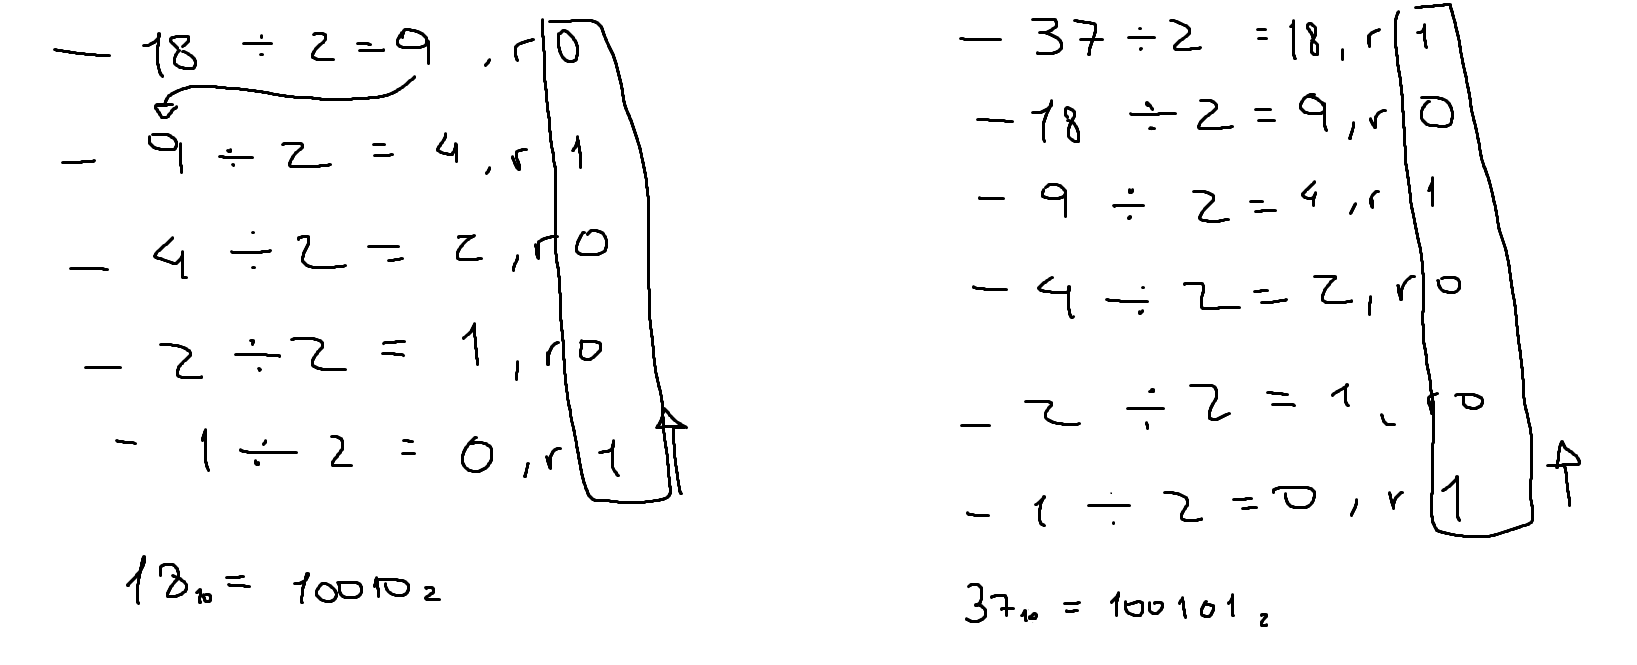 - 18 ÷ 2 = 9 , r 0
- 9 ÷ 2 = 4 , r 1
- 4 ÷ 2 = 2 , r 0
- 2 ÷ 2 = 1 , r 0
- 1 ÷ 2 = 0 , r 1
18₁₀ = 10010₂
- 37 ÷ 2 = 18 , r 1
- 18 ÷ 2 = 9 , r 0
- 9 ÷ 2 = 4 , r 1
- 4 ÷ 2 = 2 , r 0
- 2 ÷ 2 = 1 , r 0
- 1 ÷ 2 = 0 , r 1
37₁₀ = 100101₂